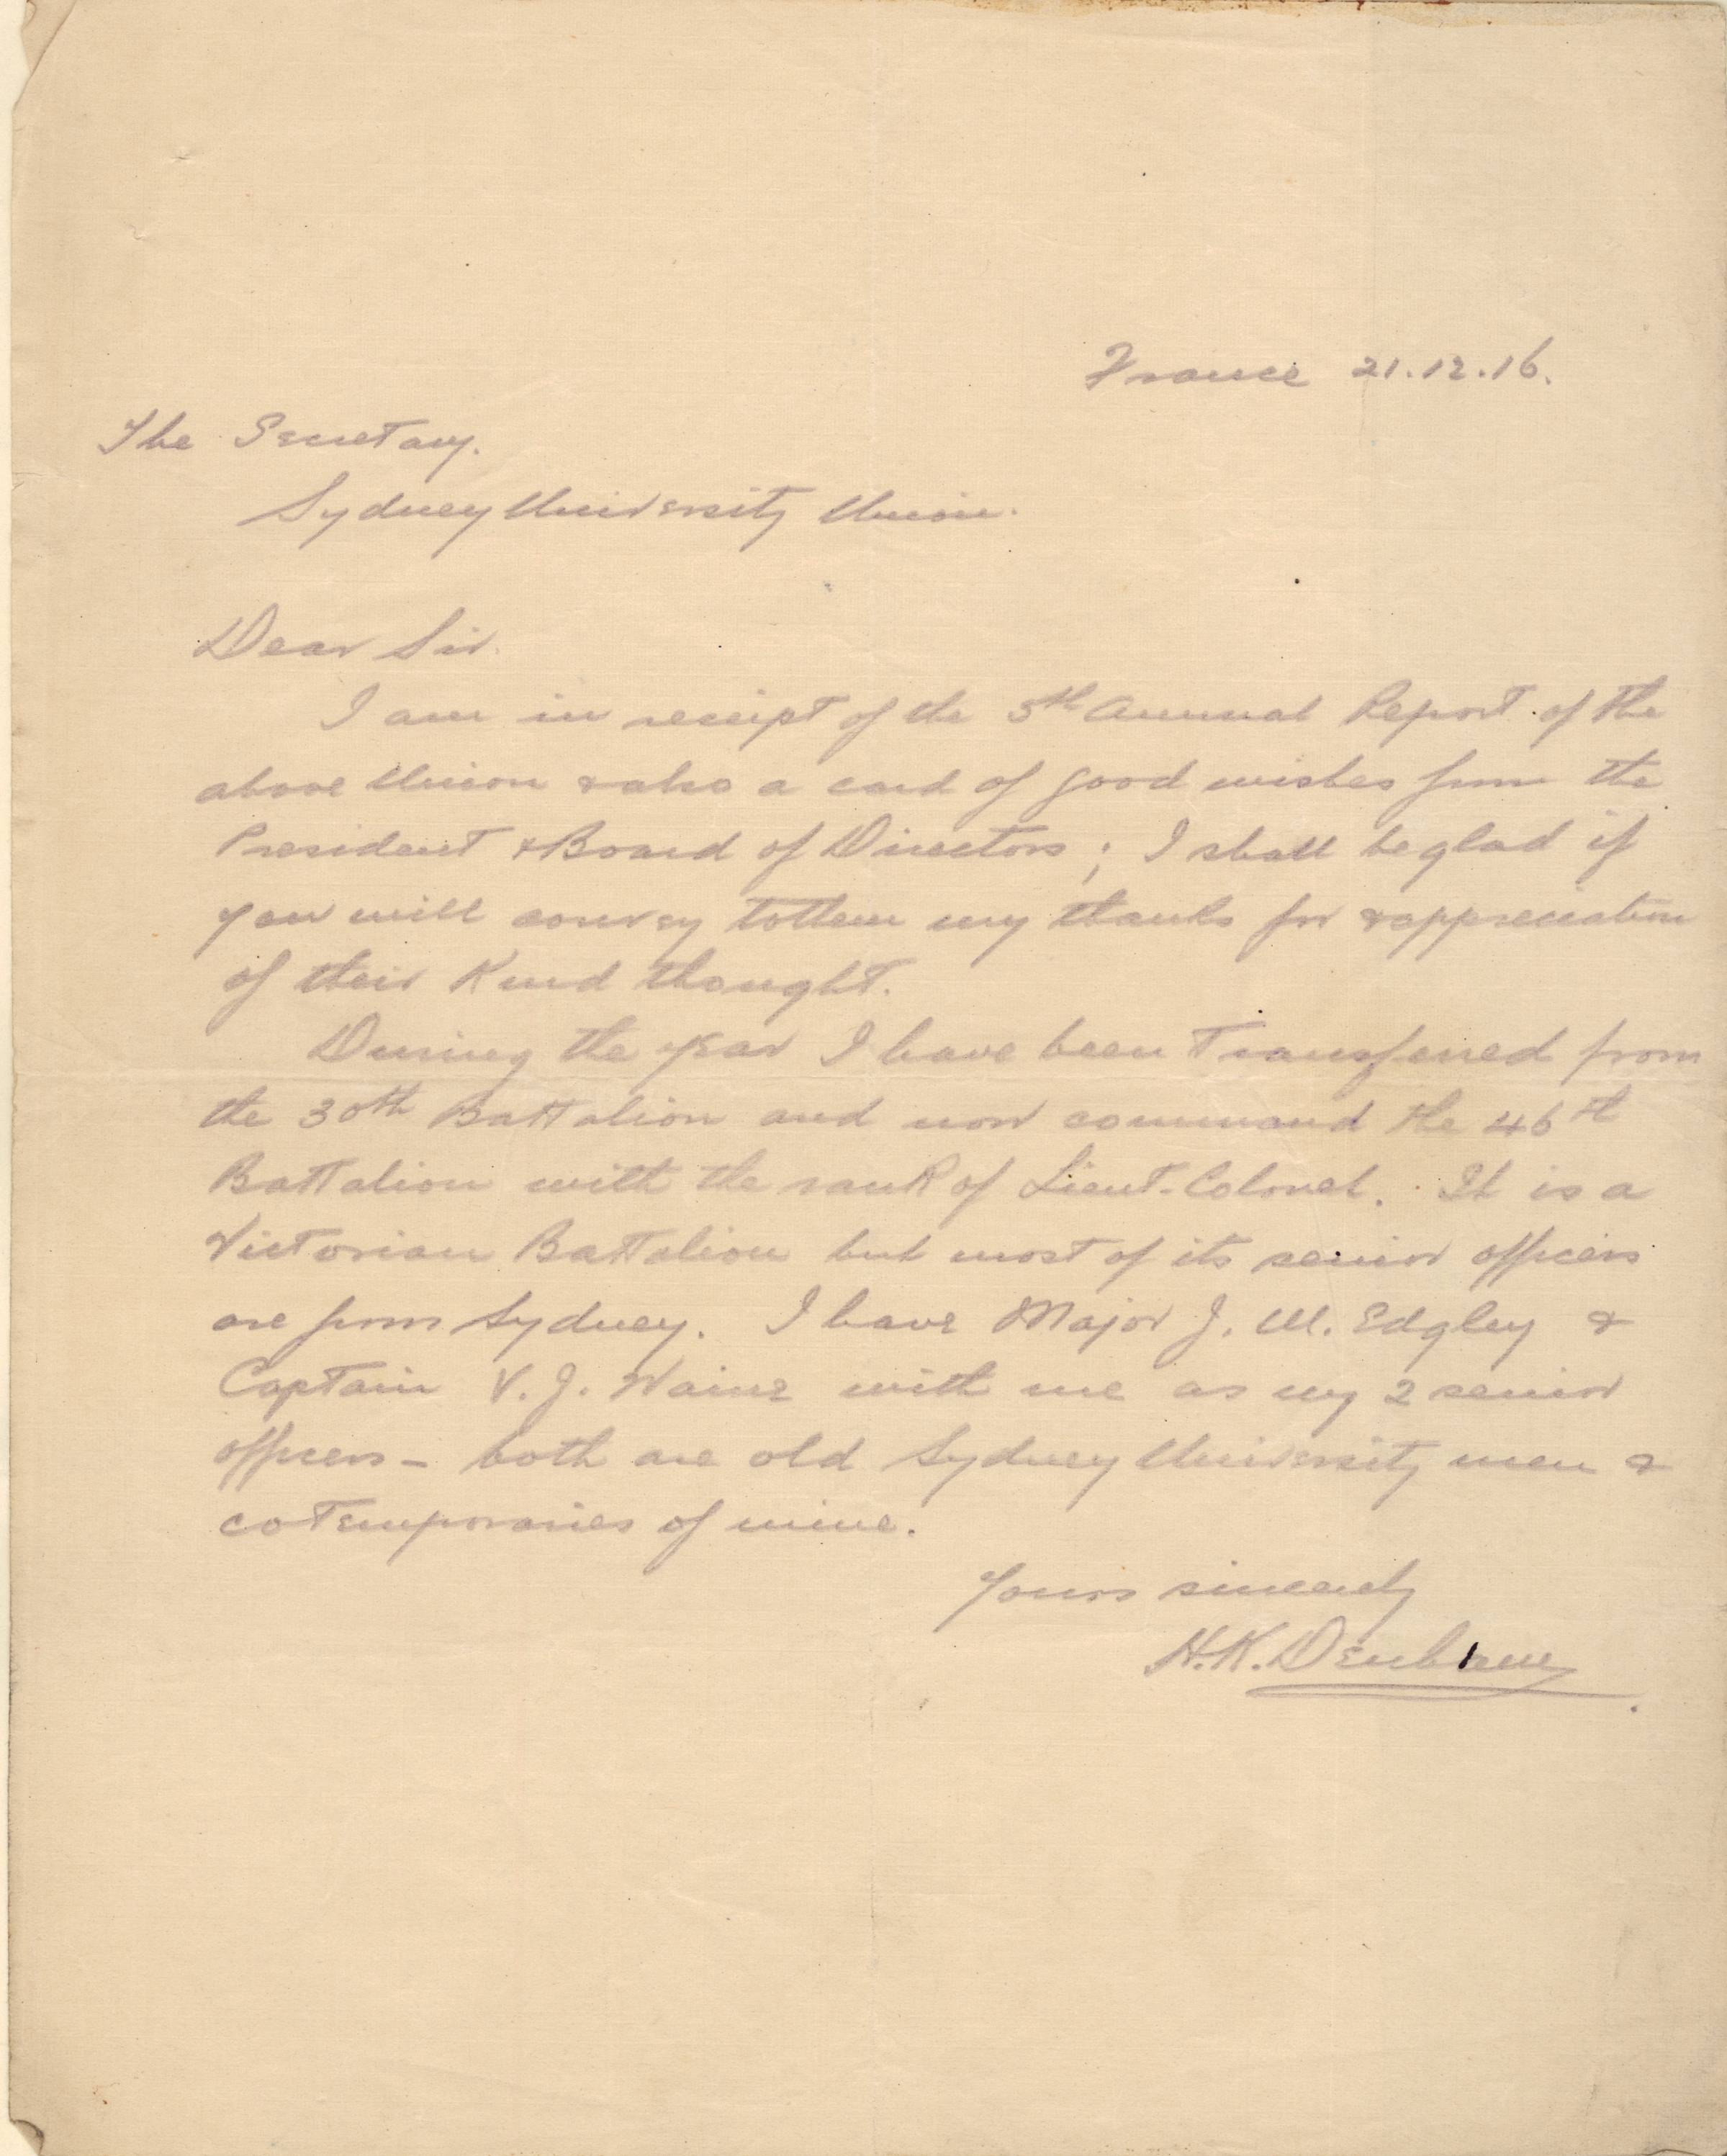 France 21.12.16.
The Secretary.
Sydney University Union.
Dear Sir.
I am in receipt of the 5th Annual Report of the
above Union & also a card of good wishes from the
President & Board of Directors; I shall be glad if
you will convey to them my thanks for & appreciation
of their kind thought.
During the year I have been transferred from
the 30th Battalion and now command the 46th
Battalion with the rank of Lieut-Colonel. It is a
Victorian Battalion but most of its senior officers
are from Sydney. I have Major J. W. Edgley &
Captain V. J. Waine with me as my 2 senior
officers - both are old Sydney University men &
cotemporaries of mine.
Yours sincerely
H.K. Denham